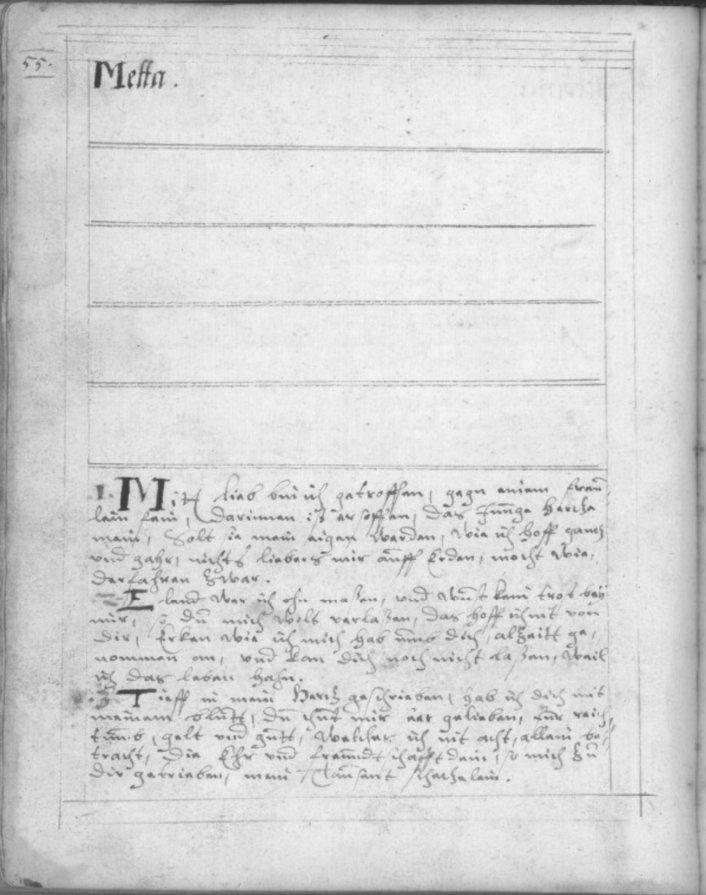 55.
Metta.
1. Mit lieb bin ich getroffen, gegn einem freu̅
lein fein, darinnen ist ersoffen, das Junge Hertze
mein, Solt sie mein aigen werden, wie ich hoff gantz
und gahr, nichts liebers mir auff Erden, mocht wie,
derfahren zwar.
2. E land war ich ohn maßen, und wust kein trost bey
mir, so du mich wolt verlaßen, das hoff ich nit von
dir, Erken wie ich mich hab umb dich, alzeitt ge,
nommen an, und kan dich noch nicht laßen, weil
ich das leben hahn.
3. Tieff in mein Hertz geschrieben, hab ich dich mit
meinem blutt, du thust mir lieben, für reich
tumb, gelt und gutt, welches ich nit acht, allein be,
tracht, die Ehr und freundtschafft dein, so mich zu
dir getrieben, mein Tausent schatzelein.